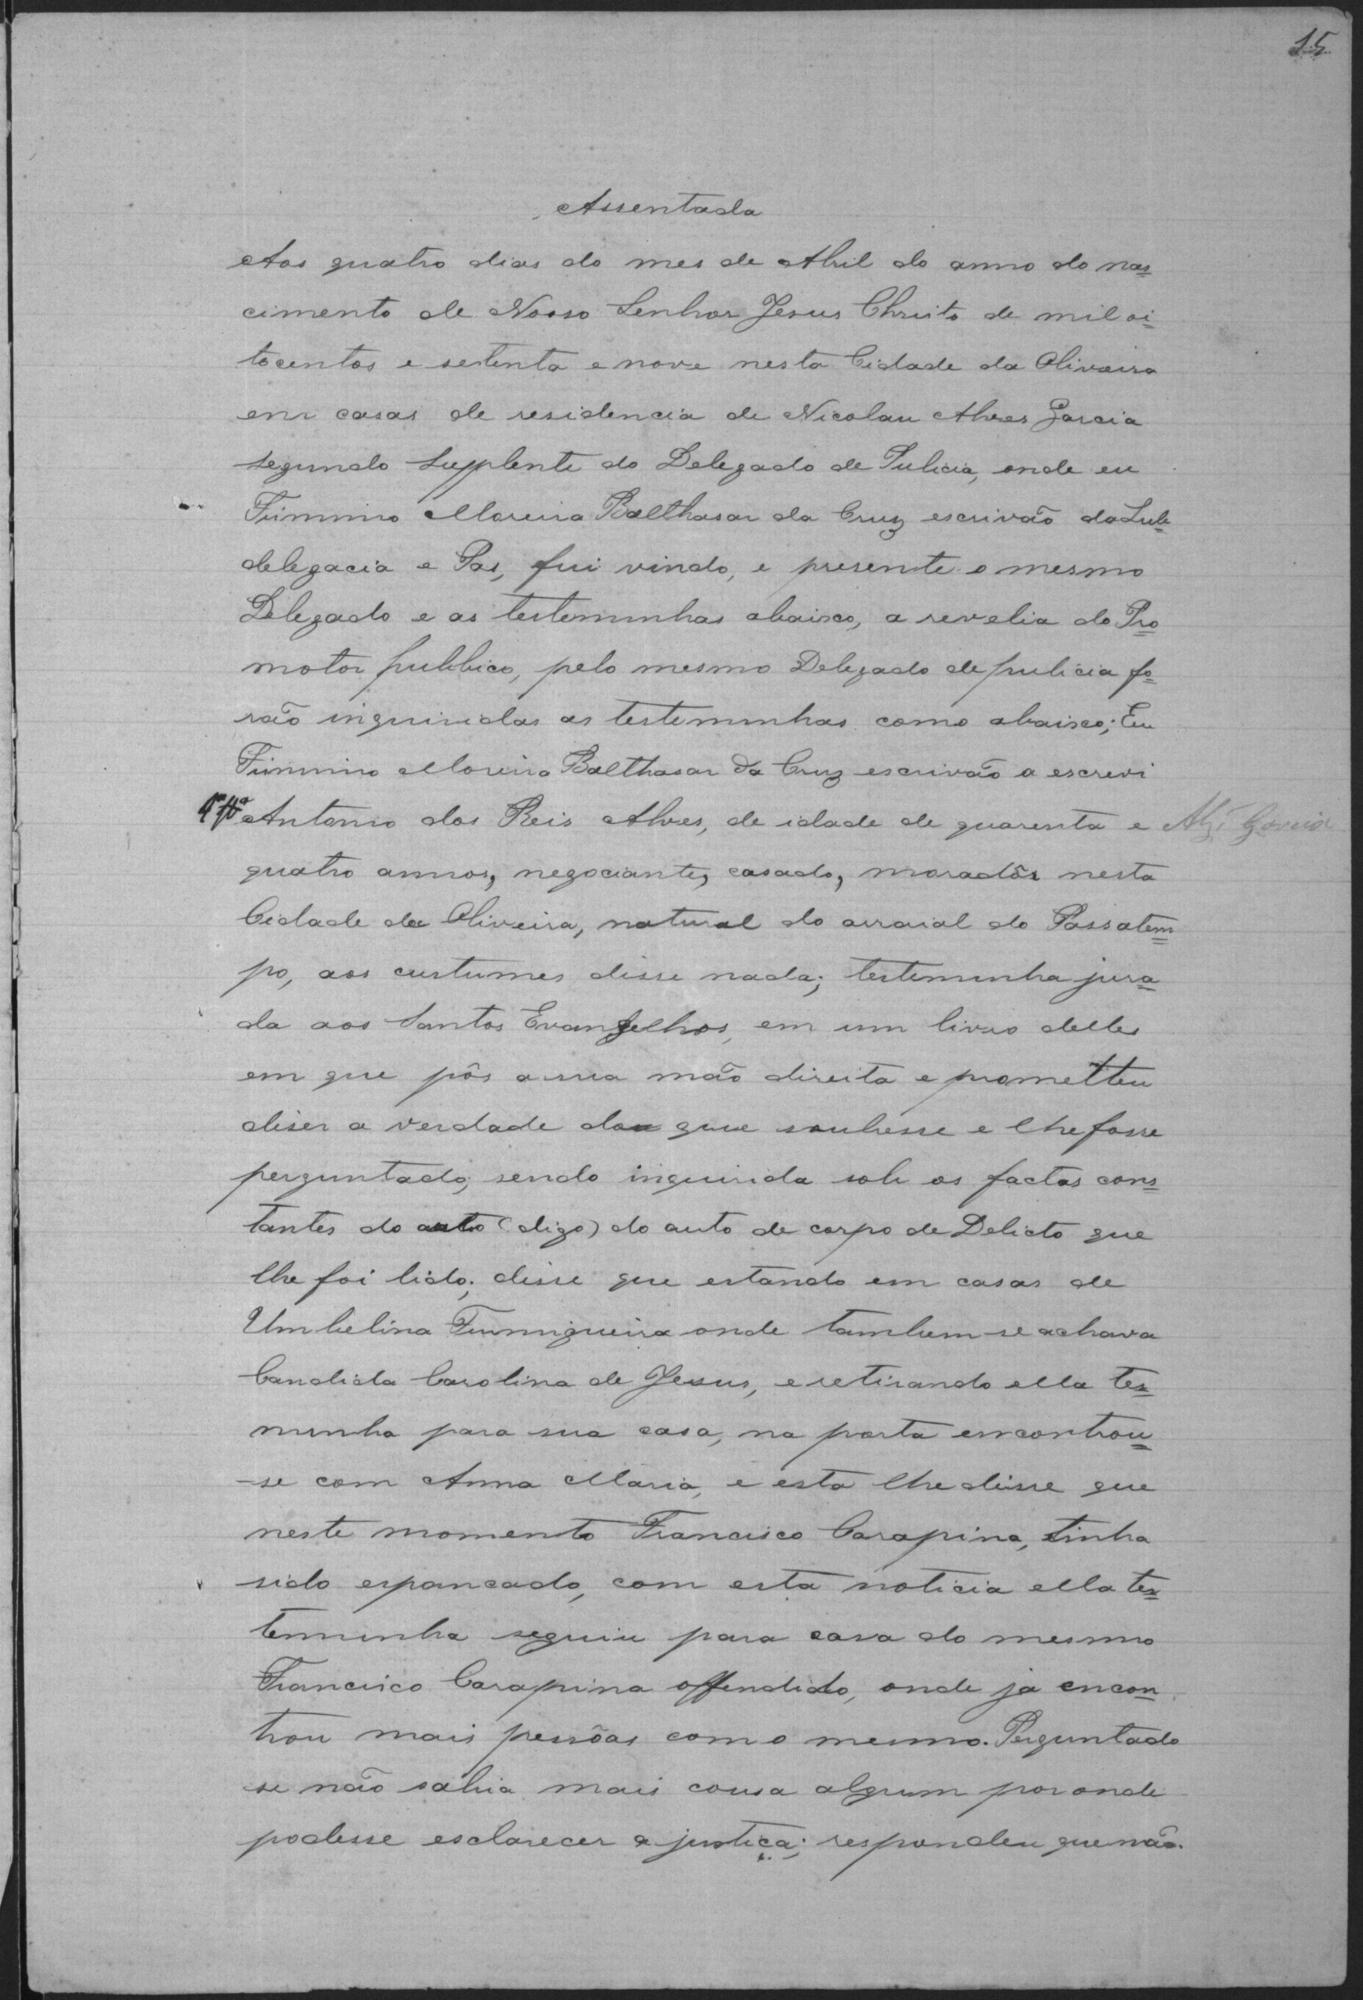 15
Assentada
Aos quatro dias do mes de Abril do anno do nas-
cimento de Nosso Senhor Jesus Christo de mil oi-
tocentos e setenta e nove nesta Cidade da Oliveira
em casas de residencia de Nicolau Alves Garcia
segundo Supplente do Delegado de Pulicia, onde eu
Firmino Moreira Balthasar da Cruz escrivão da Sub-
delegacia e Pas, fui vindo, e presente o mesmo
Delegado e as testeminhas abaixo, a revelia do Pro-
motor publico, pelo mesmo Delegado de pulicia fo-
rão inquiridas as testeminhas como abaixo; Eu
Firmino Moreira Balthasar da Cruz escrivão o escrevi
Antonio dos Reis Alves, de idade de quarenta e
quatro annos, negociante, casado, moradôr nesta
Cidade da Oliveira, natural do arraial do Passatem-
po, aos custumes disse nada; testeminha jura-
da aos Santos Evangelhos, em um livro delles
em que pôs a sua mão direita e prometteu
diser a verdade do que soubesse e lhe fosse
perguntado, sendo inquirida sob os factos cons-
tantes do auto (digo) do auto de corpo de Delicto que
lhe foi lido; disse que estando em casas de
Umbelina Furmigueira onde tambem se achava
Candida Carolina de Jesus, e retirando ella tes-
minha para sua casa, na porta encontrou-
-se com Anna Maria, e esta lhe disse que
neste momento Francisco Carapina, tinha
sido espancado, com esta noticia ella tes-
teminha seguiu para casa do mesmo
Francisco Carapina offendido, onde já encon-
trou mais pessôas com o mesmo. Perguntado
se não sabia mais cousa algum por onde
podesse esclarecer a justiça; respondeu que não.